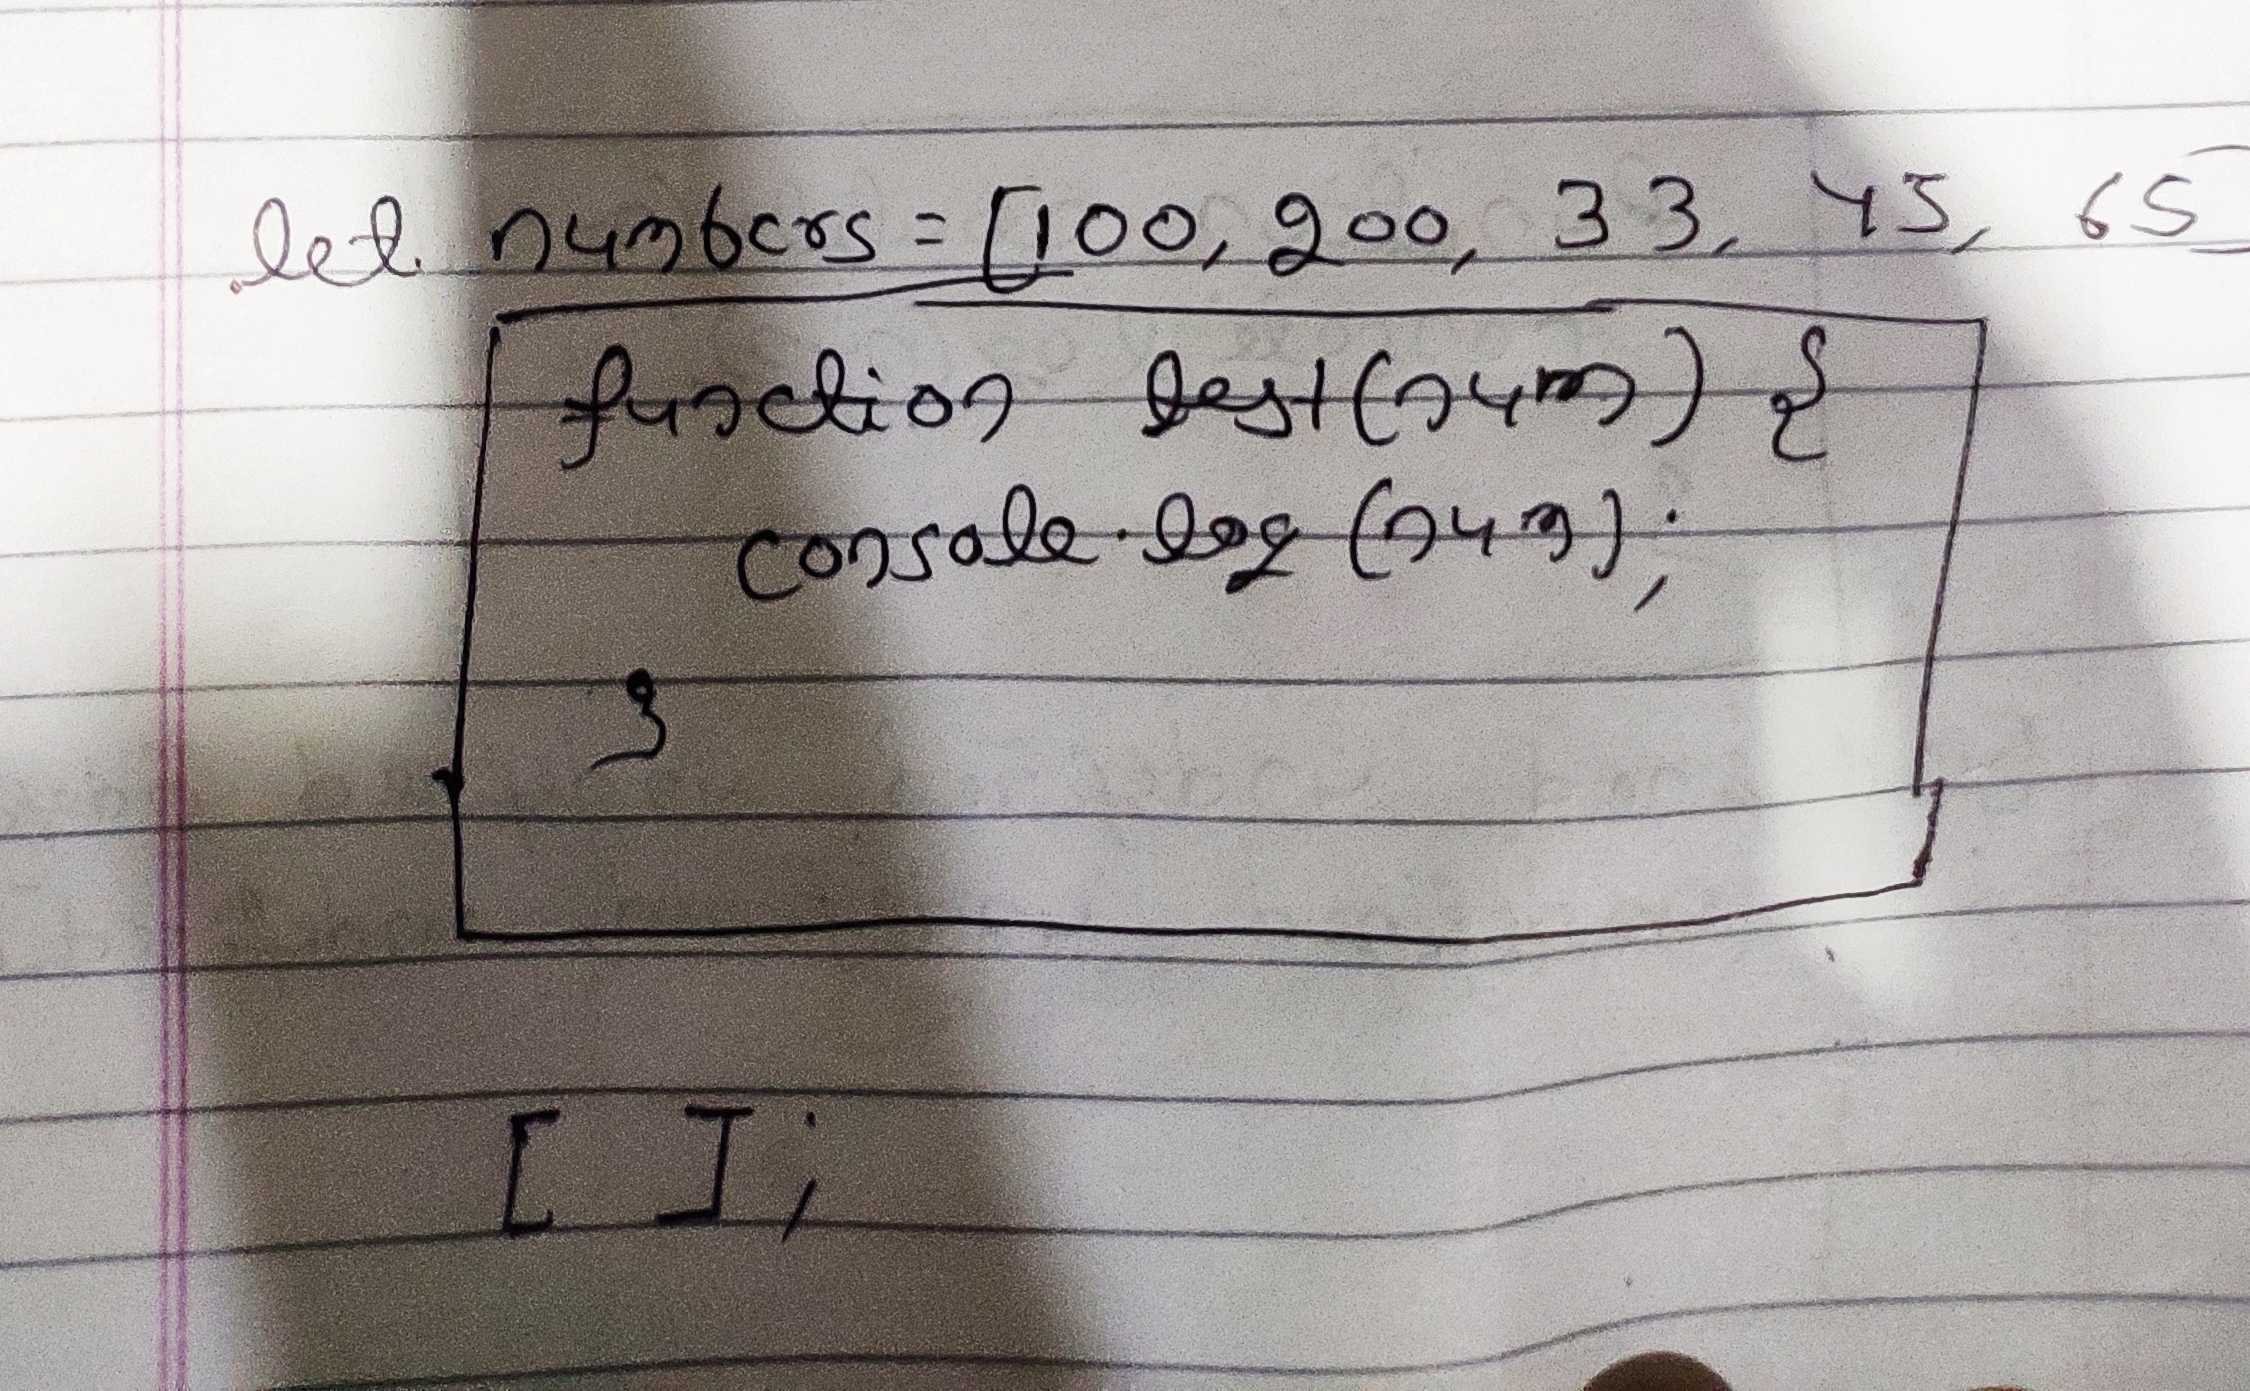 let numbers = [100, 200, 33, 45, 65]
function test(num) {
console.log(num);
}
[ ];